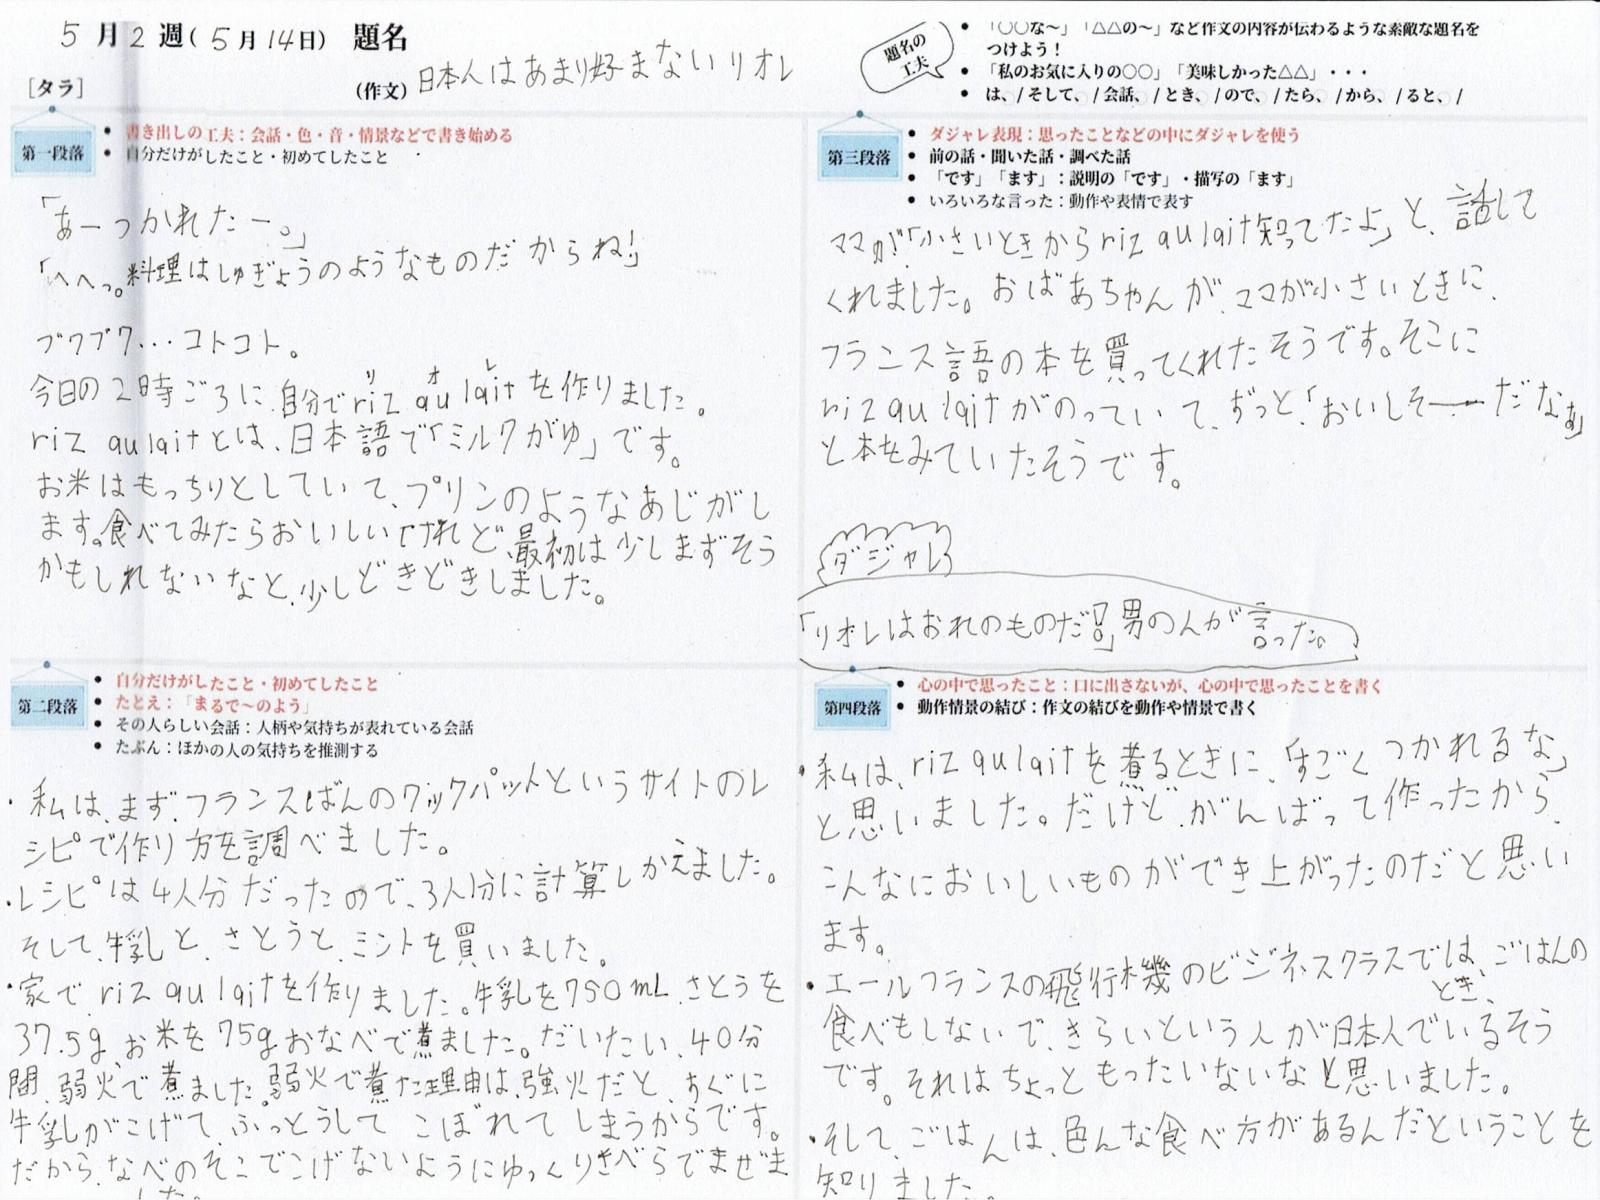 5月2週(5月14日) 題名
[タラ]
(作文)日本人はあまり好まないリオレ
題名の工夫
● 「〇〇な～」「△△の～」など作文の内容が伝わるような素敵な題名をつけよう！
● 「私のお気に入りの〇〇」「美味しかった△△」・・・
● は、/ そして、/ 会話、/ とき、/ ので、/ たら、/ から、/ ると、/
第一段落
● 書き出しの工夫：会話・色・音・情景などで書き始める
● 自分だけがしたこと・初めてしたこと
「あーつかれたー。」
「へへっ。料理はしゅぎょうのようなものだからね！」
ブクブク...コトコト。
今日の2時ごろに、自分でriz au laitを作りました。
リ オ レ
riz au laitとは、日本語で「ミルクがゆ」です。
お米はもっちりとしていて、プリンのようなあじがし
ます。食べてみたらおいしいけれど、最初は少しまずそう
かもしれないなと、少しどきどきしました。
第二段落
● 自分だけがしたこと・初めてしたこと
● たとえ：「まるで～のよう」
● その人らしい会話：人柄や気持ちが表れている会話
● たぶん：ほかの人の気持ちを推測する
・私は、まず、フランスばんのクックパットというサイトのレ
シピで作り方を調べました。
・レシピは4人分だったので、3人分に計算しかえました。
そして、牛乳と、さとうと、ミントを買いました。
・家で riz au laitを作りました。牛乳を750mL、さとうを
37.5g、お米を75gおなべで煮ました。だいたい、40分
間、弱火で煮ました。弱火で煮た理由は、強火だと、すぐに
牛乳がこげて、ふっとうして こぼれて しまうからです。
だから、なべのそこでこげないようにゆっくりきべらでまぜま
した。
第三段落
● ダジャレ表現：思ったことなどの中にダジャレを使う
● 前の話・聞いた話・調べた話
● 「です」「ます」：説明の「です」・描写の「ます」
● いろいろな言った：動作や表情で表す
ママが「小さいときからriz au lait知ってたよ」と、話して
くれました。おばあちゃんが、ママが小さいときに、
フランス語の本を買ってくれたそうです。そこに
riz au laitがのっていて、ずっと、「おいしそーーだなぁ」
と本をみていたそうです。
ダジャレ
「リオレはおれのものだ！。」男の人が言った。
第四段落
● 心の中で思ったこと：口に出さないが、心の中で思ったことを書く
● 動作情景の結び：作文の結びを動作や情景で書く
・私は、riz au laitを煮るときに、「すごくつかれるな」
と思いました。だけど、がんばって作ったから、
こんなにおいしいものができ上がったのだと思い
ます。
・エールフランスの飛行機のビジネスクラスでは、ごはんの
とき、
食べもしないで、きらいという人が日本人でいるそう
です。それはちょっともったいないなと思いました。
・そして、ごはんは、色んな食べ方があるんだということを
知りました。